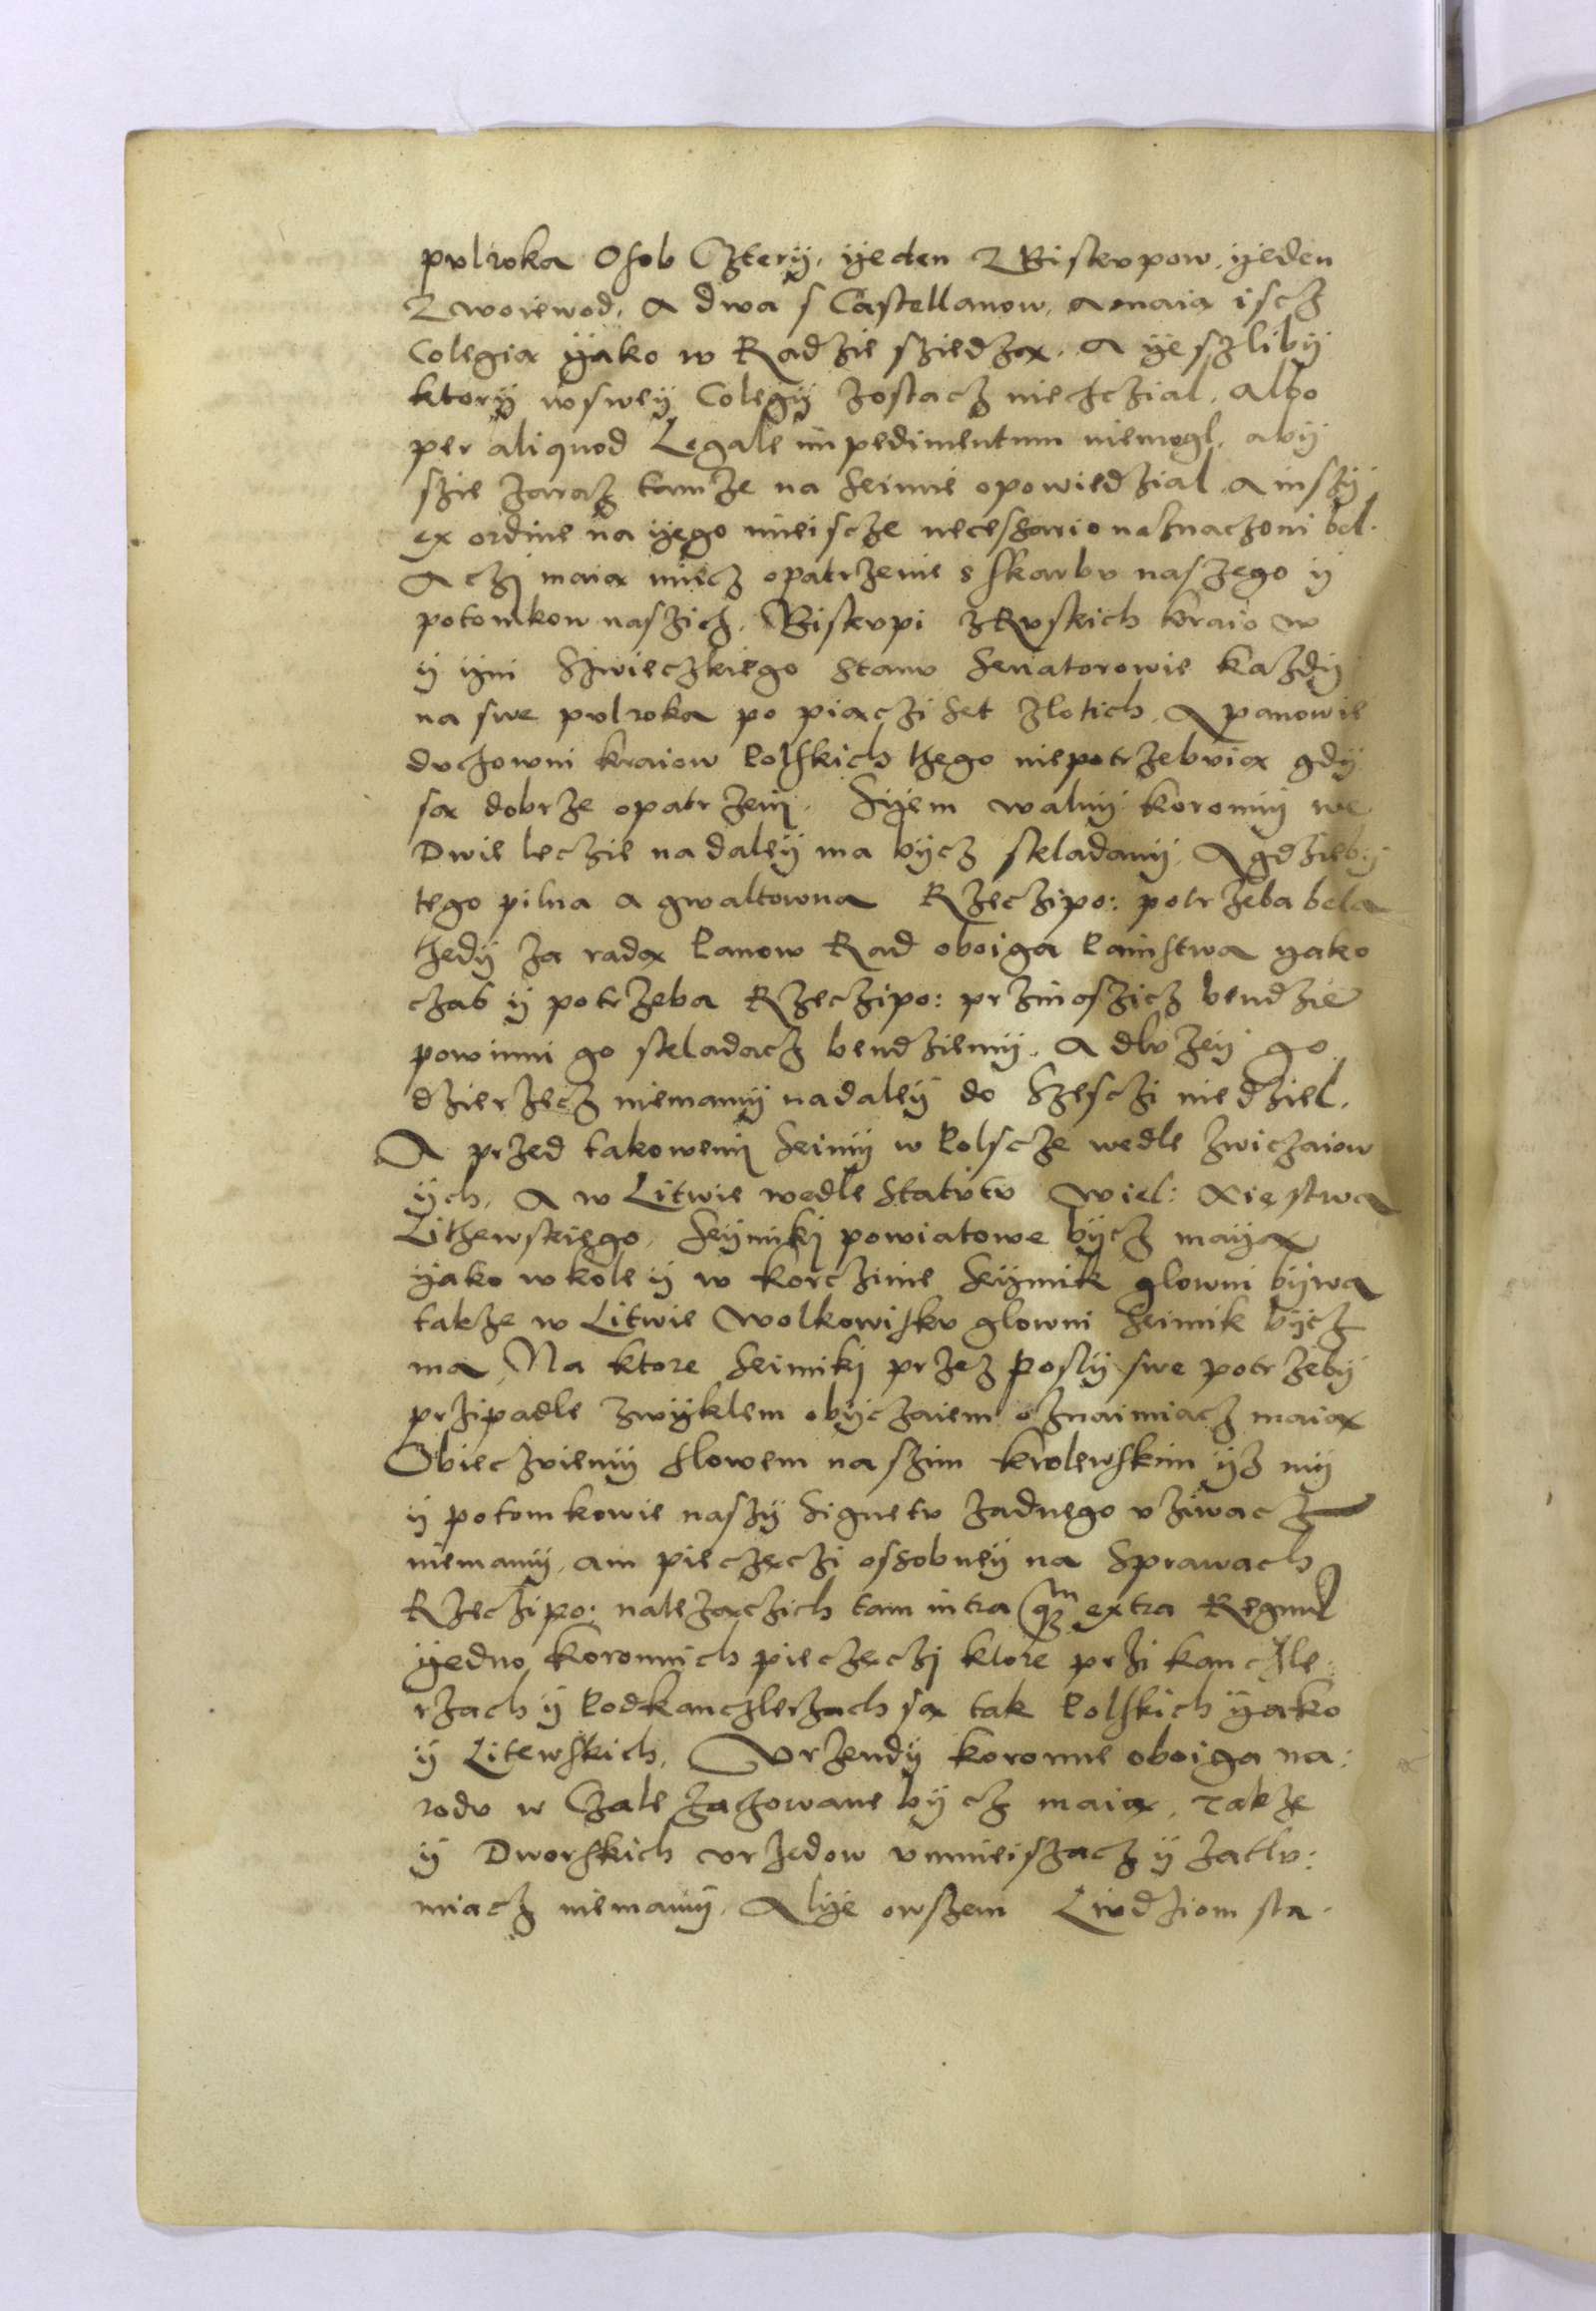 pulroka Osob Cztery, yeden Z Biskupow, yeden
Z woiewod, A dwa s Castellanow, a maia iscz
Colegia yako w Radzie sziedza. A yeszliby
ktory w swey Colegy zostacz niechczial, Albo
per aliquod Legale impedimentum niemogl, aby
szie zaraz tamze na seimie opowiedzial A inszy
ex ordine na yego mieiscze necessario naznaczoni bel.
A czy maia miecz opatrzenie s skarbu naszego y
potomkow naszich. Biskupi z Ruskich kraiow
y yni Szwieczkiego stanu senatorowie kazdy
na swe pulroka po piaczi set zlotich. A panowie
duchowni kraiow Polskich thego niepotrzebuia gdy
sa dobrze opatrzeny. Syem walny koronny we
Dwie leczie nadaley ma bycz skladany. A gdzieby
tego pilna a gwaltowna Rzeczipo: potrzeba bela
thedy za rada Panow Rad oboiga Painstwa yako
czas y potrzeba Rzeczipo: przinoszicz bendzie
powinni go skladacz bendziemy. A dluzey go
dzierzecz niemamy nadaley do Szesczi niedziel.
A przed takowemy seimy w Polscze wedle zwiczaiow
ych, A w Litwie wedle Statutu Wiel: Xiestwa
Lithewskiego, seymiky powiatowe bycz mayą
yako w koley w korczinie seymik glowni bywa
takze w Litwie Wolkowisku glowni seimik bycz
ma, Na ktore seimiky przez posly swe potrzeby
przipadle zwyklem obyczaiem oznaimiacz maia
Obieczuiemy slowem naszim krolewskim yz my
y potomkowie naszy signetu zadnego uziwacz
niemamy, ani pieczeczi ossobney na Sprawach
Rzeczipo: nalezaczich tam intra qm extra Regnu
yedno koronnich pieczeczy ktore przi kanczle:
rzach y Podkanczlerzach sa tak Polskich yako
y Litewskich. Urzendy koronne oboiga na:
rodu w Czale zachowane bycz maia, Takze
y Dworskich urzedow umnieiszacz y zatlu:
miacz niemamy, Alye owszem Liudziom sta.